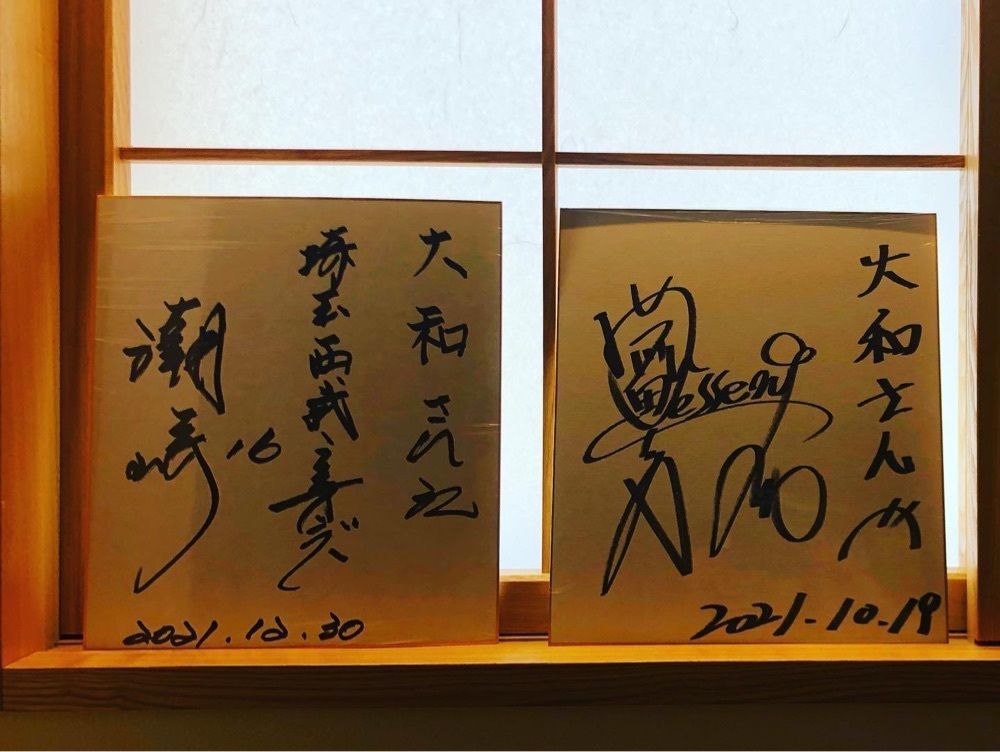 大和さん江
埼玉西武ライオンズ
潮崎 16
2021.12.30
大和さん江
2021.10.19